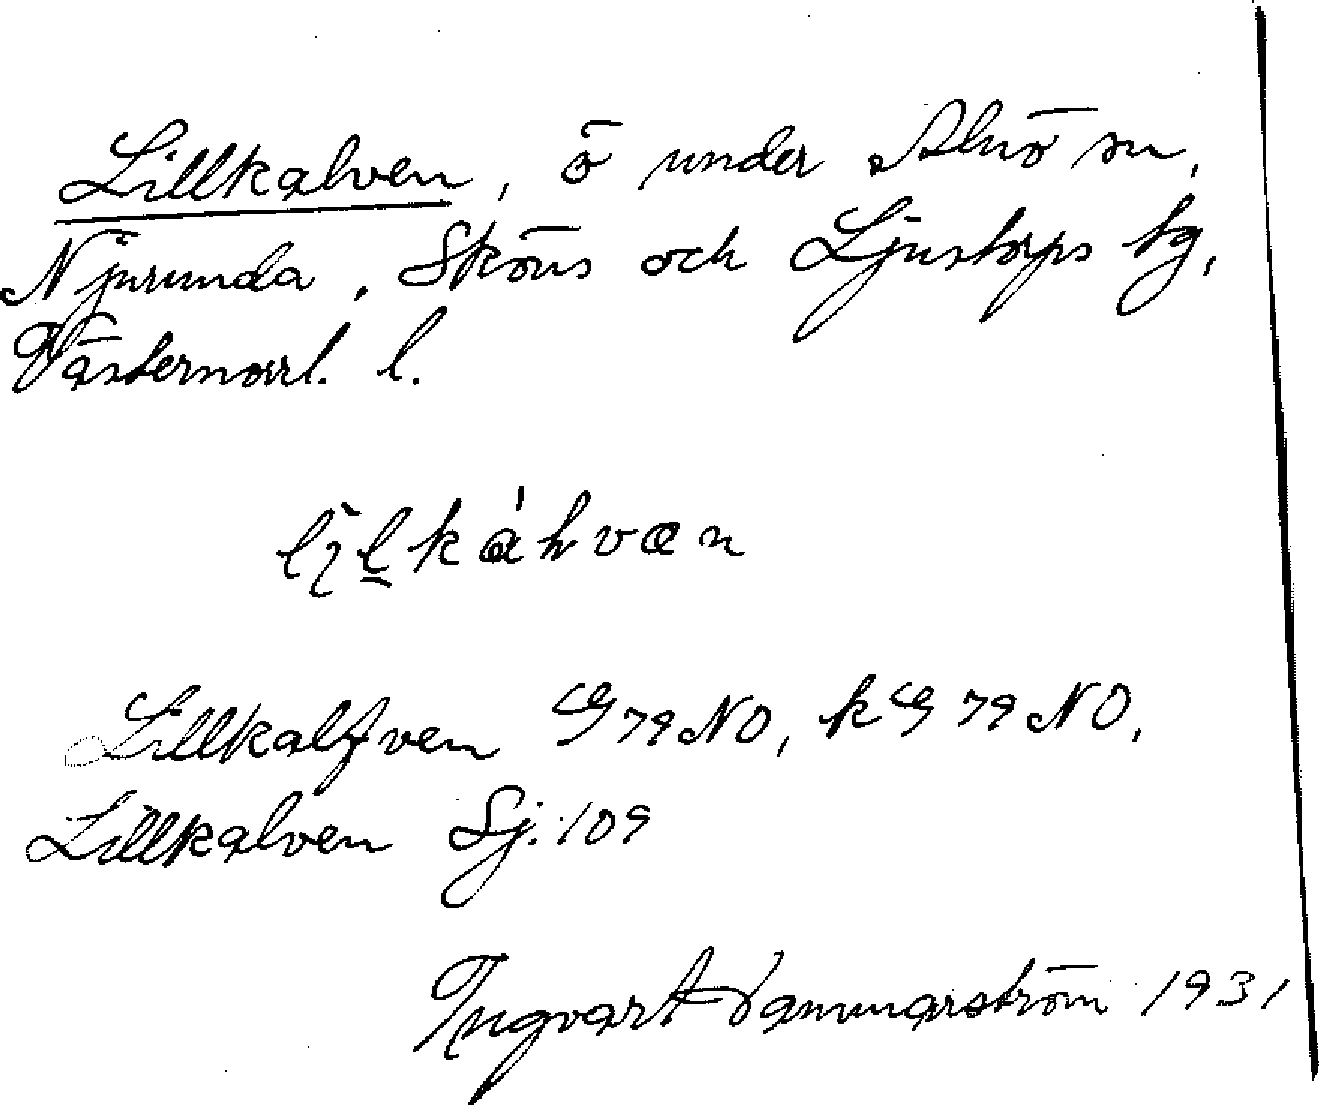 Lillkalven, ö under Alnö sn,
Njurunda, Sköns och Ljustorps tg,
Västernorrl. l.
Lillkalfven G 79 NO, kG 79 NO,
Lillkalven Sj. 109
Ingvart Hammarström 1931